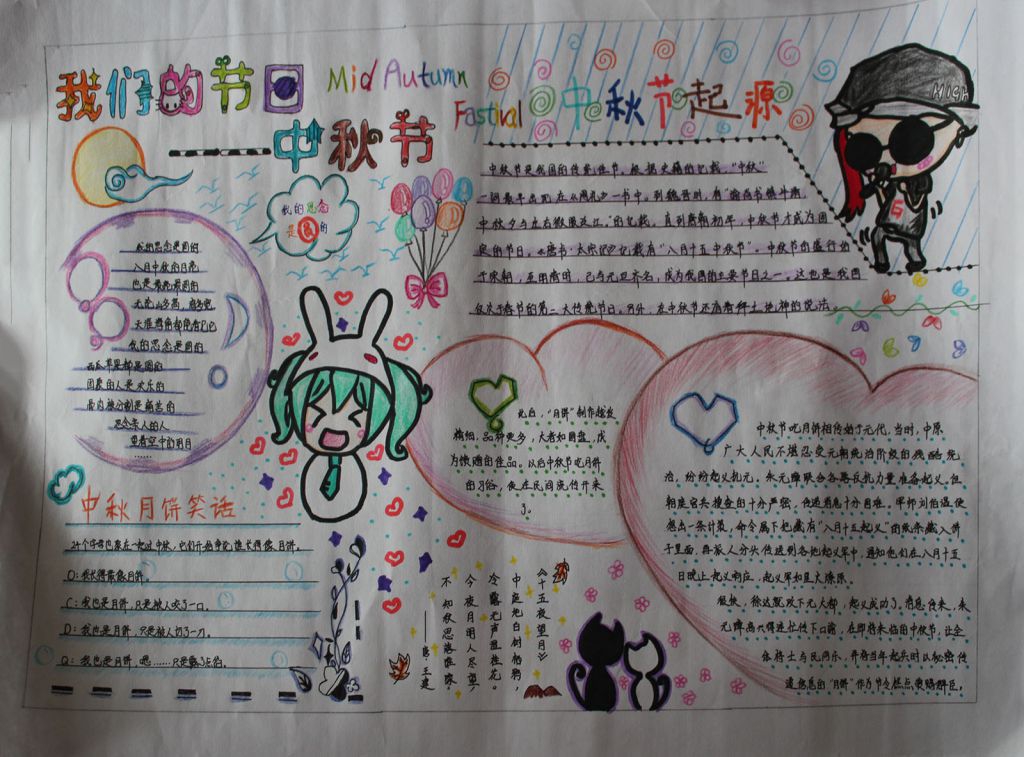 我们的节日
Mid Autumn
Fastival
——中秋节
中秋节起源
HIGH
我的思念
是圆的
中秋节是我国的传统佳节。根据史籍的记载，“中秋”
一词最早出现在《周礼》一书中。到魏晋时，有“谕尚书镇牛渚
中秋夕与左右微服泛江”的记载。直到唐朝初年，中秋节才成为固
定的节日。《唐书·太宗记》记载有“八月十五中秋节”。中秋节的盛行始
于宋朝，至明清时，已与元旦齐名，成为我国的主要节日之一。这也是我国
仅次于春节的第二大传统节日。另外，在中秋节还流有拜土地神的说法。
我的思念是圆的
八月中秋的月亮
也是最亮最圆的
无论山多高，海多宽
天涯海角都能看它
我的思念是圆的
西瓜苹果都是圆的
团聚的人是欢乐的
骨肉被分割是痛苦的
思念亲人的人
望着空中的明月
……
此后，“月饼”制作越发
精细，品种更多，大者如圆盘，成
为馈赠的佳品。以后中秋节吃月饼
的习俗，便在民间流传开来
了。
中秋节吃月饼相传始于元代，当时，中原
广大人民不堪忍受元朝统治阶级的残酷统
治，纷纷起义抗元。朱元璋联合各路反抗力量准备起义。但
朝廷官兵搜查的十分严密，传递消息十分困难。军师刘伯温便
想出一条计策，命令属下把藏有“八月十五起义”的纸条藏入饼
子里面，再派人分头传送到各地起义军中，通知他们在八月十五
日晚上起义响应。起义军如星火燎原。
很快，徐达就攻下元大都，起义成功了。消息传来，朱
元璋高兴得连忙传下口谕，在即将来临的中秋节，让全
体将士与民同乐，并将当年起兵时以秘密传
递信息的“月饼”作为节令糕点赏赐群臣。
中秋月饼笑话
24个字母也聚在一起过中秋，它们开始争论：谁长得像月饼。
O：我长得最像月饼。
C：我也是月饼，只是被人咬了一口。
D：我也是月饼，只是被人切了一刀。
Q：我也是月饼，嗯……只是露了馅。
《十五夜望月》
中庭地白树栖鸦，
冷露无声湿桂花。
今夜月明人尽望，
不知秋思落谁家。
——唐·王建